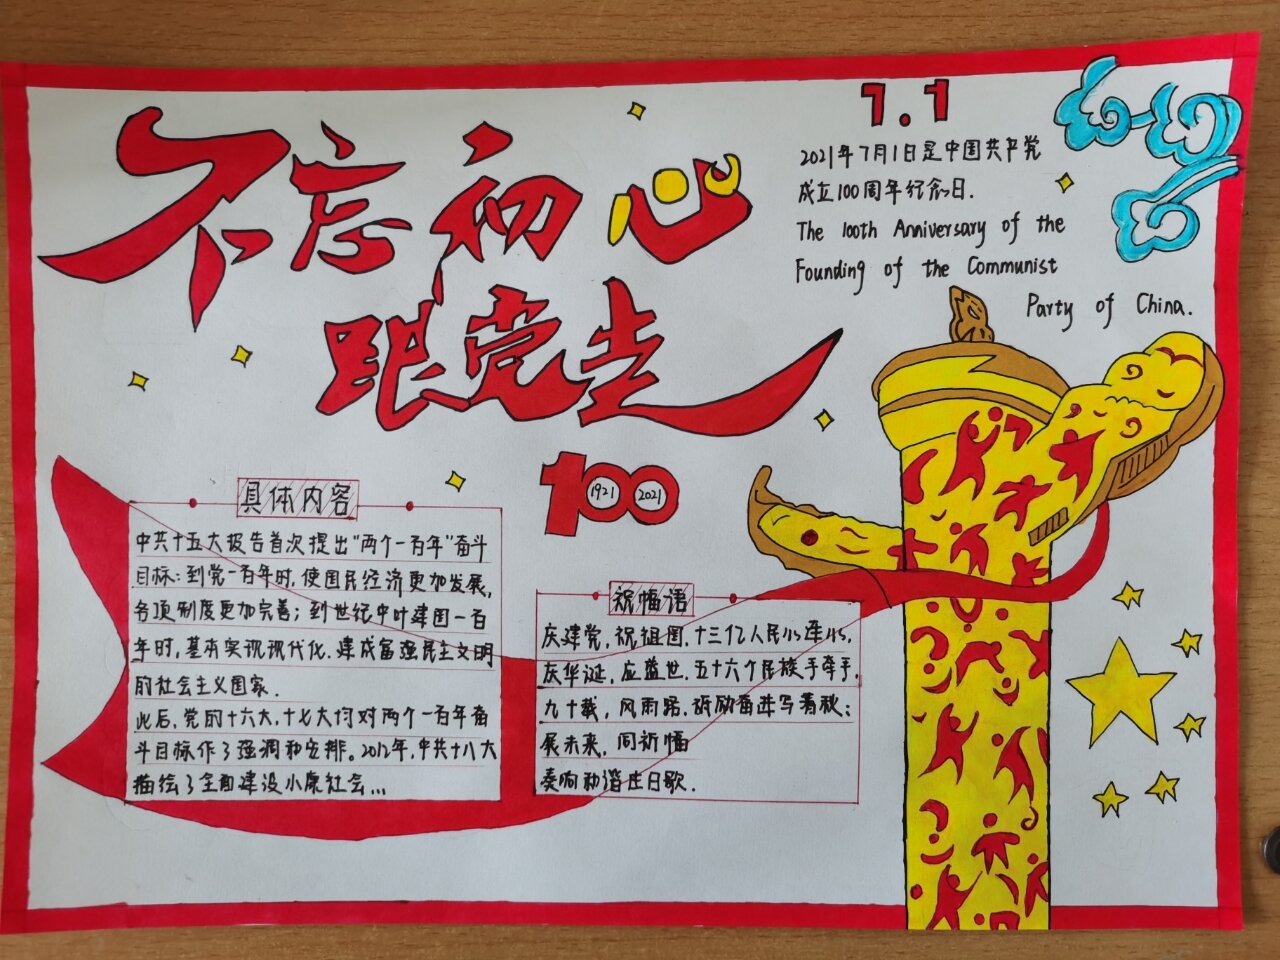 不忘初心
跟党走
7.1
2021年7月1日是中国共产党
成立100周年纪念日.
The 100th Anniversary of the
Founding of the Communist
Party of China.
100
1921
2021
具体内容
中共十五大报告首次提出“两个一百年”奋斗
目标:到党一百年时,使国民经济更加发展,
各项制度更加完善;到世纪中叶建国一百
年时,基本实现现代化.建成富强民主文明
的社会主义国家.
此后,党的十六大,十七大均对两个一百年奋
斗目标作了强调和安排.2012年,中共十八大
描绘了全面建设小康社会...
祝福语
庆建党,祝祖国,十三亿人民心连心,
庆华诞,应盛世,五十六个民族手牵手,
九十载,风雨路,砥励奋进写春秋;
展未来,同祈福
奏响和谐庄日歌.